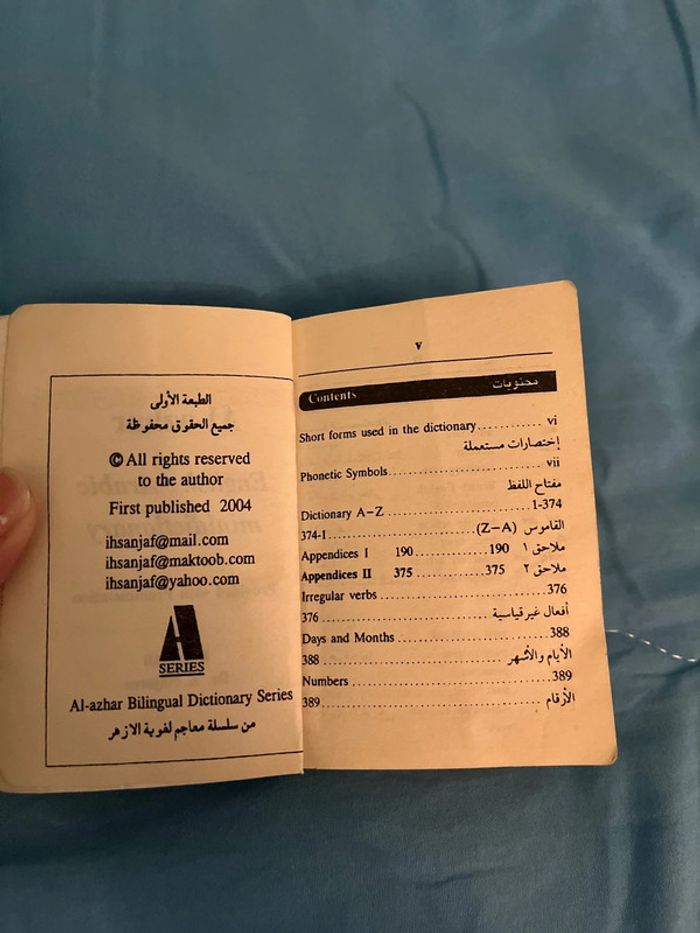 الطبعة الأولى
جميع الحقوق محفوظة
© All rights reserved
to the author
First published 2004
ihsanjaf@mail.com
ihsanjaf@maktoob.com
ihsanjaf@yahoo.com
A
SERIES
Al-azhar Bilingual Dictionary Series
من سلسلة معاجم لغوية الازهر
v
Contents محتويات
Short forms used in the dictionary........... vi
إختصارات مستعملة
Phonetic Symbols.............................. vii
مفتاح اللفظ
Dictionary A-Z ...........................1-374
القاموس (Z-A)............................374-1
Appendices I 190 ..............190 ملاحق ١
Appendices II 375 ..............375 ملاحق ٢
Irregular verbs ................................376
أفعال غير قياسية ................................376
Days and Months ...........................388
الأيام والأشهر ................................388
Numbers .....................................389
الأرقام .....................................389